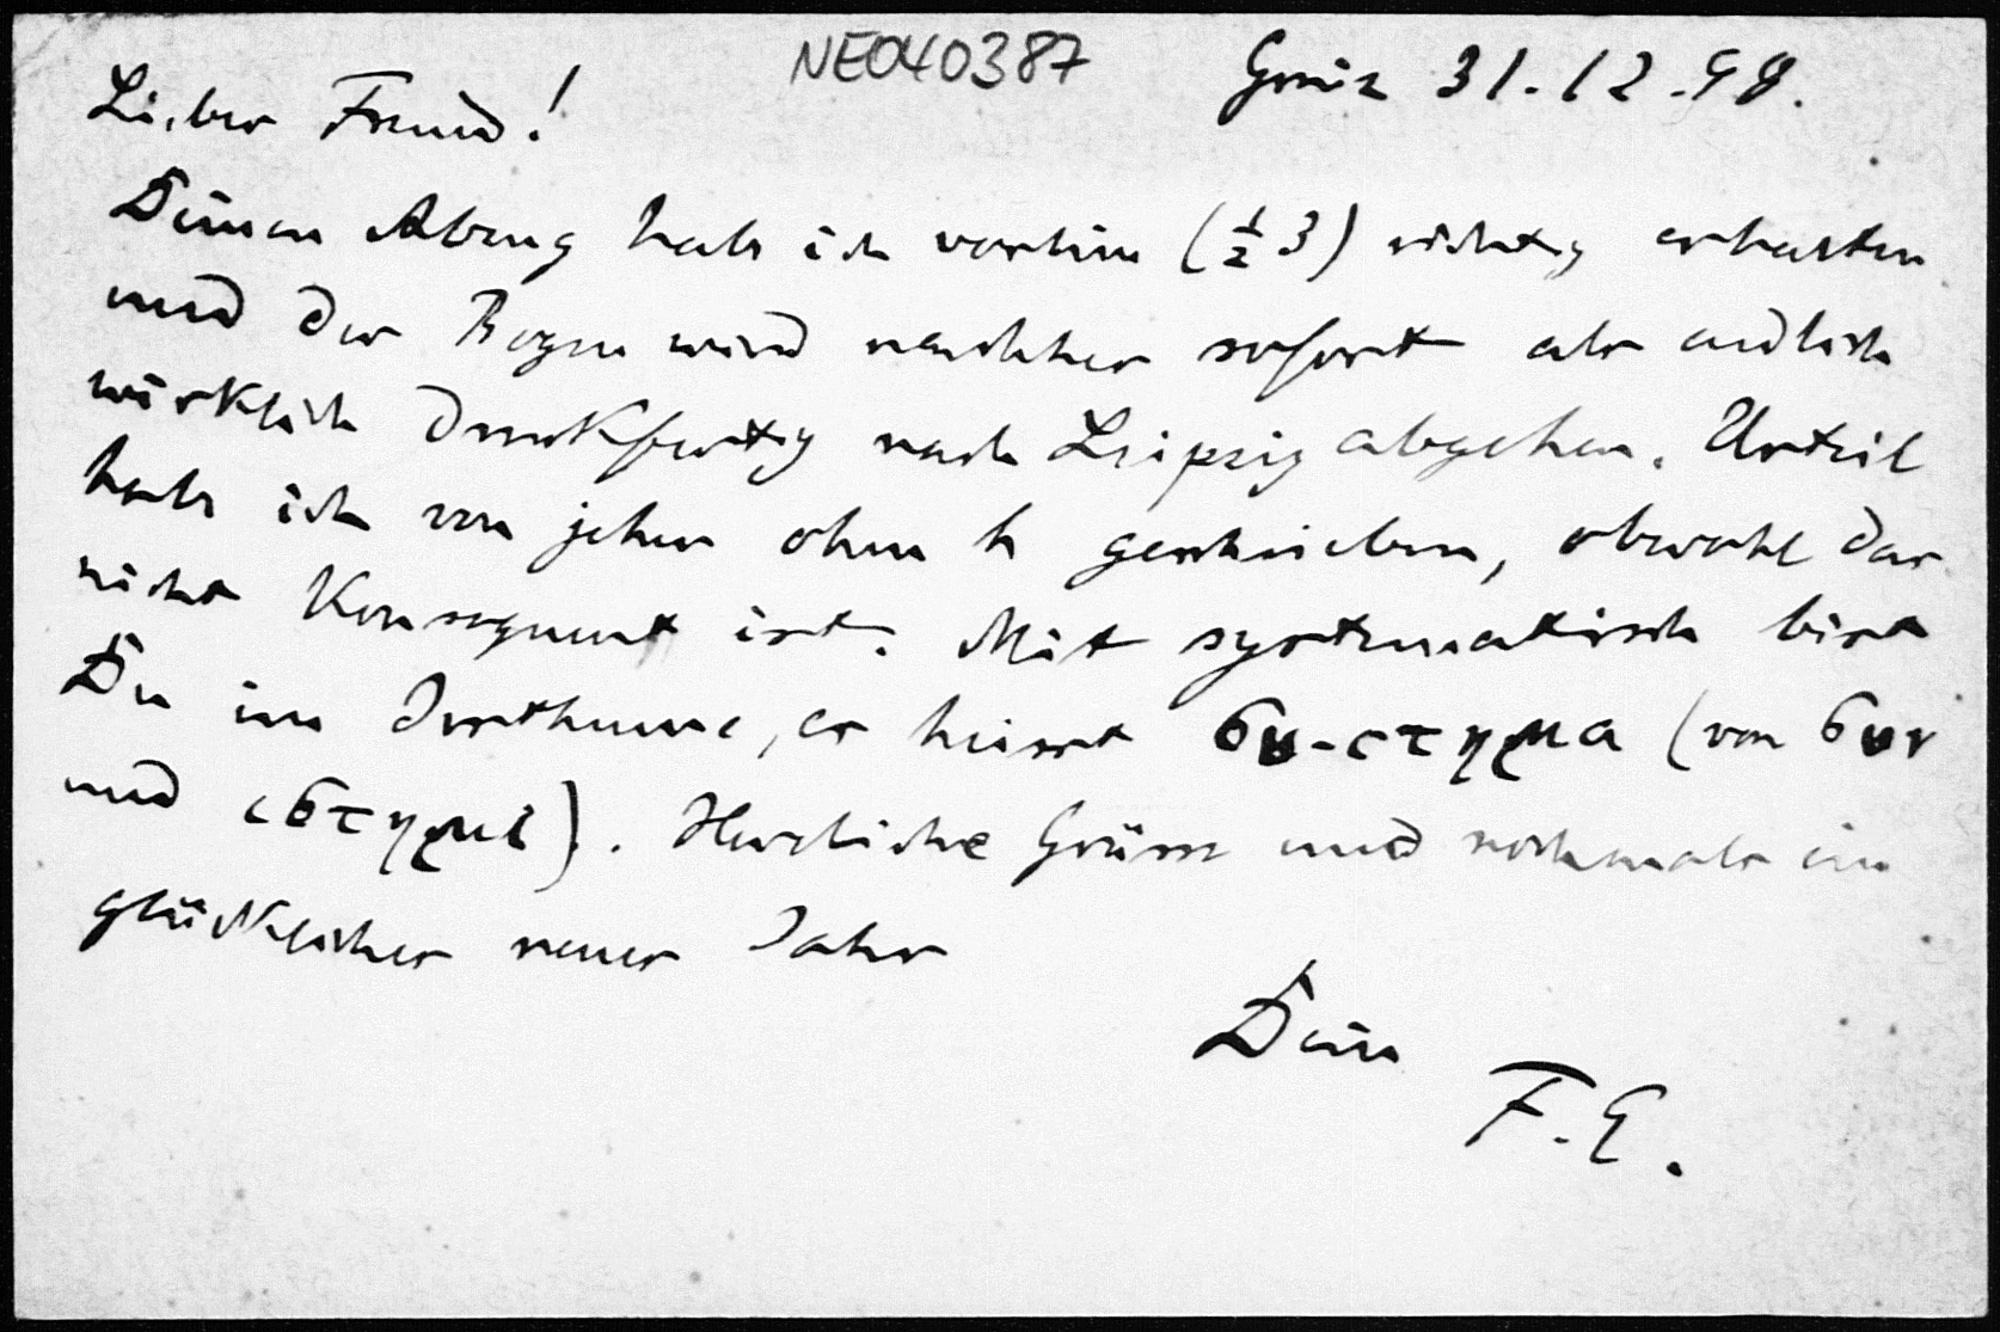 NE040387
Greiz 31.12.98.
Lieber Freund!
Deinen Abzug habe ich vorhin (½3) richtig erhalten
und der Bogen wird nachher sofort als endlich
wirklich druckfertig nach Leipzig abgehen. Urteil
habe ich von jeher ohne h geschrieben, obwohl das
nicht konsequent ist. Mit systematisch bist
Du im Irrthume, es heisst συ-στημα (von συν
und ιστημι). Herzliche Grüsse und nochmals ein
glückliches neues Jahr
Dein
F. E.